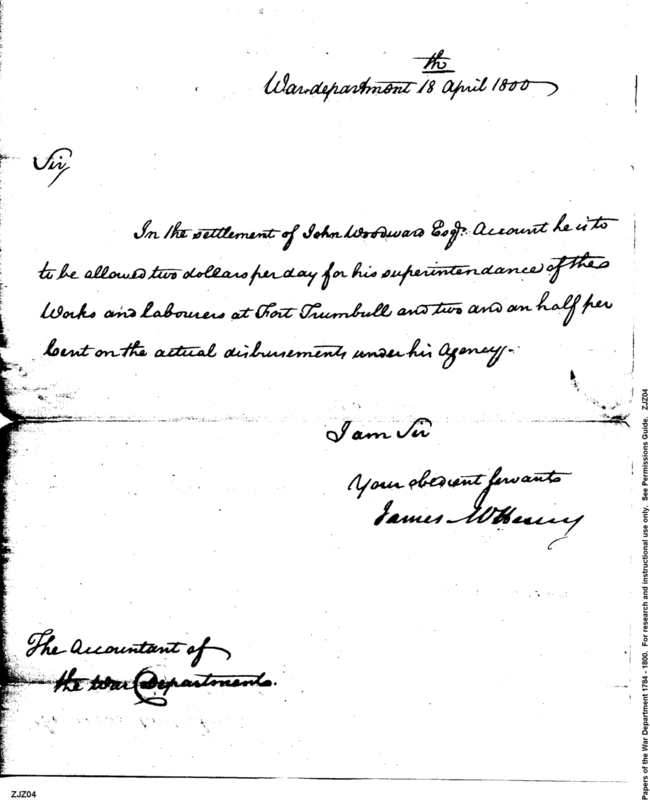 War department 18th April 1800
Sir
In the settlement of John Woodward Esqr. Account he is to
to be allowed two dollars per day for his superintendance of the
Works and Labourers at Fort Trumbull and two and an half per
Cent on the actual disbursements under his Agency.
I am Sir
Your obedient servant
James McHenry
The Accountant of
the War Department.
ZJZ04
Papers of the War Department 1784 - 1800. For research and instructional use only. See Permissions Guide. ZJZ04